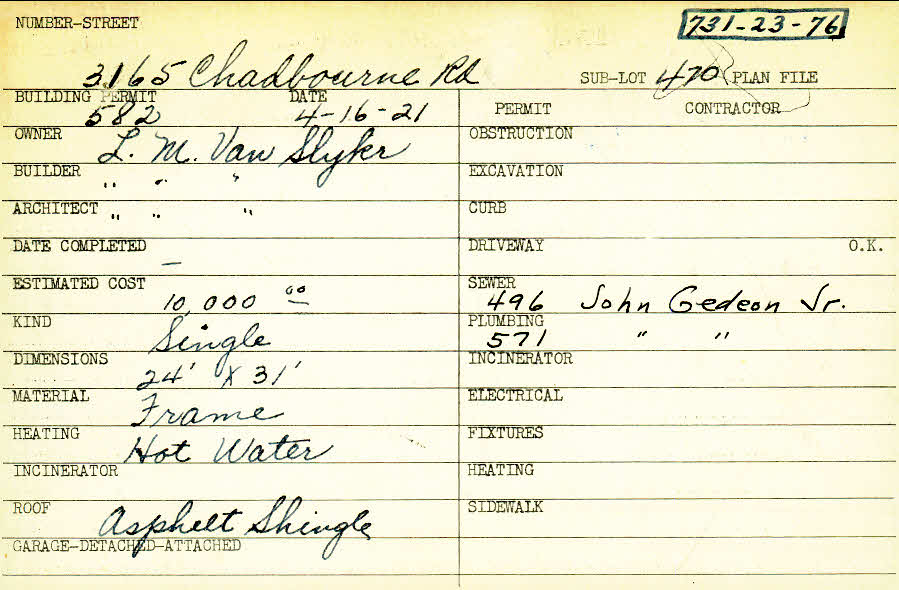 NUMBER-STREET 731-23-76
3165 Chadbourne Rd SUB-LOT 470 PLAN FILE
BUILDING PERMIT DATE PERMIT CONTRACTOR
582 4-16-21
OWNER L. M. Van Slyke OBSTRUCTION
BUILDER " " " EXCAVATION
ARCHITECT " " " CURB
DATE COMPLETED — DRIVEWAY O.K.
ESTIMATED COST 10,000 00 SEWER 496 John Gedeon Jr.
KIND Single PLUMBING 571 " "
DIMENSIONS 24' X 31' INCINERATOR
MATERIAL Frame ELECTRICAL
HEATING Hot Water FIXTURES
INCINERATOR HEATING
ROOF Asphelt Shingle SIDEWALK
GARAGE-DETACHED-ATTACHED